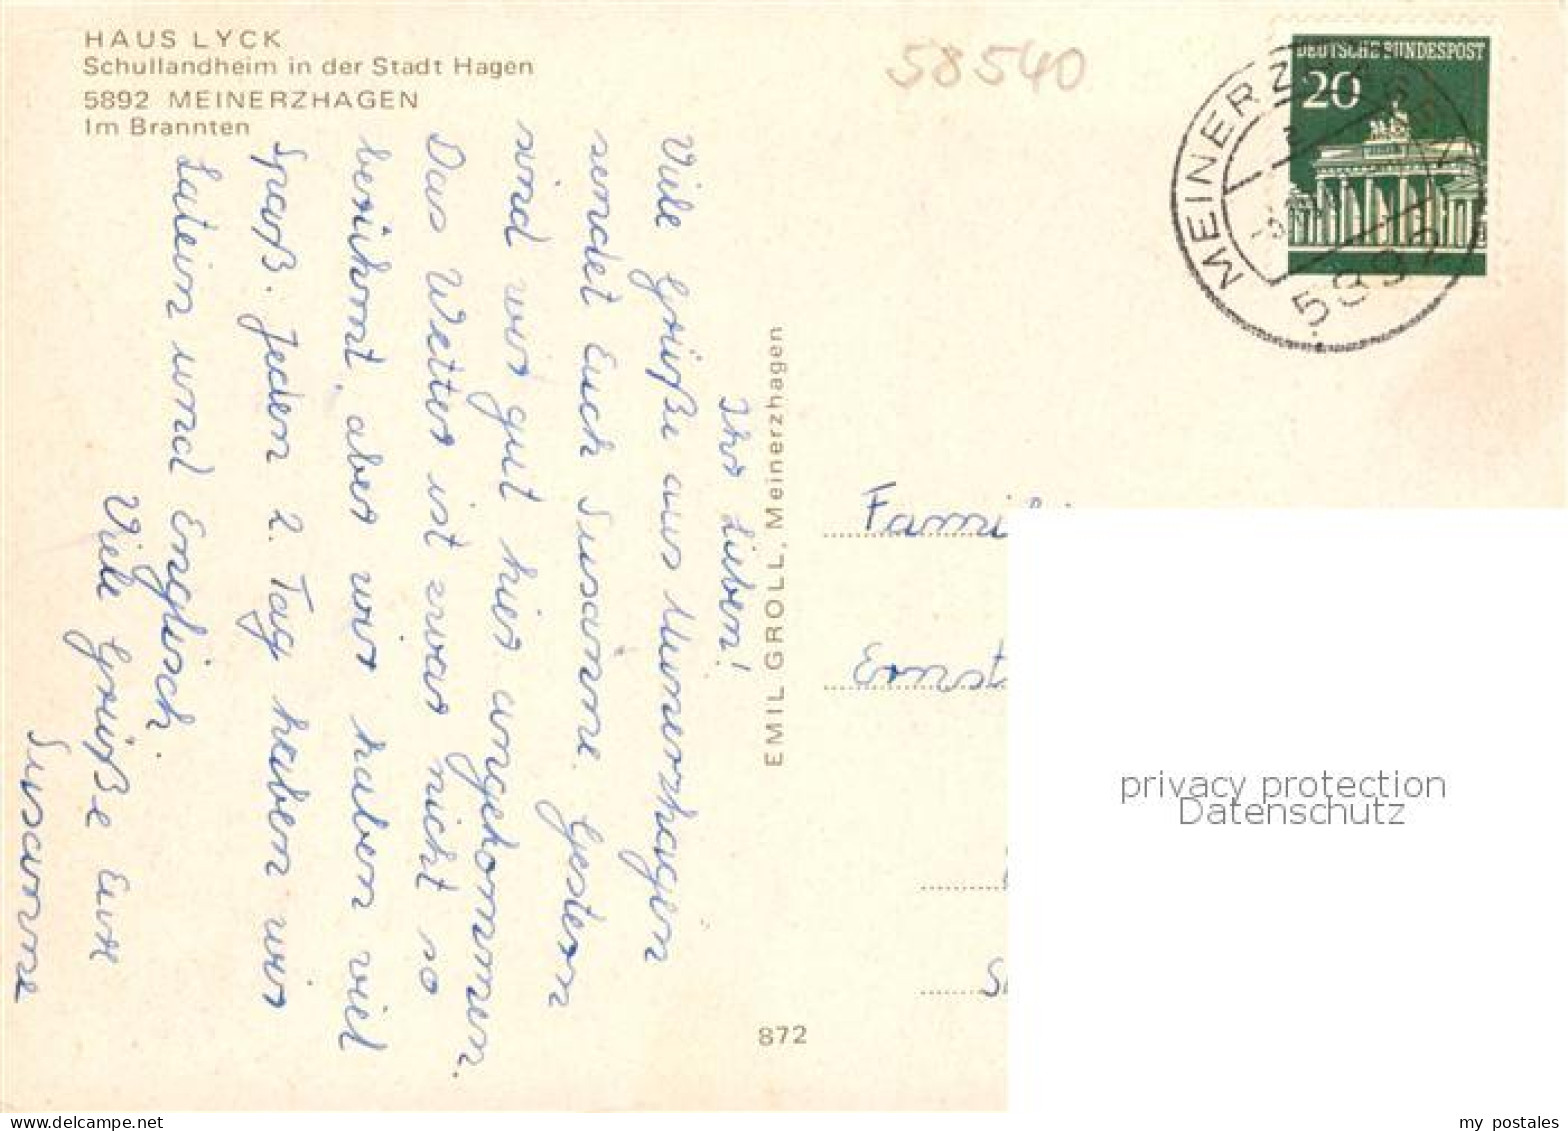 HAUS LYCK
Schullandheim in der Stadt Hagen
5892 MEINERZHAGEN
Im Brannten
58540
DEUTSCHE BUNDESPOST
20
MEINERZHAGEN
5892
Ihr Lieben!
Viele Grüße aus Meinerzhagen
sendet Euch Susanne. Gestern
sind wir gut hier angekommen.
Das Wetter ist zwar nicht so
berühmt, aber wir haben viel
Spaß. Jeden 2. Tag haben wir
Latein und Englisch.
Viele Grüße Eure
Susanne
EMIL GROLL, Meinerzhagen
872
Famili
Ernst
privacy protection
Datenschutz
delcampe.net
my_postales